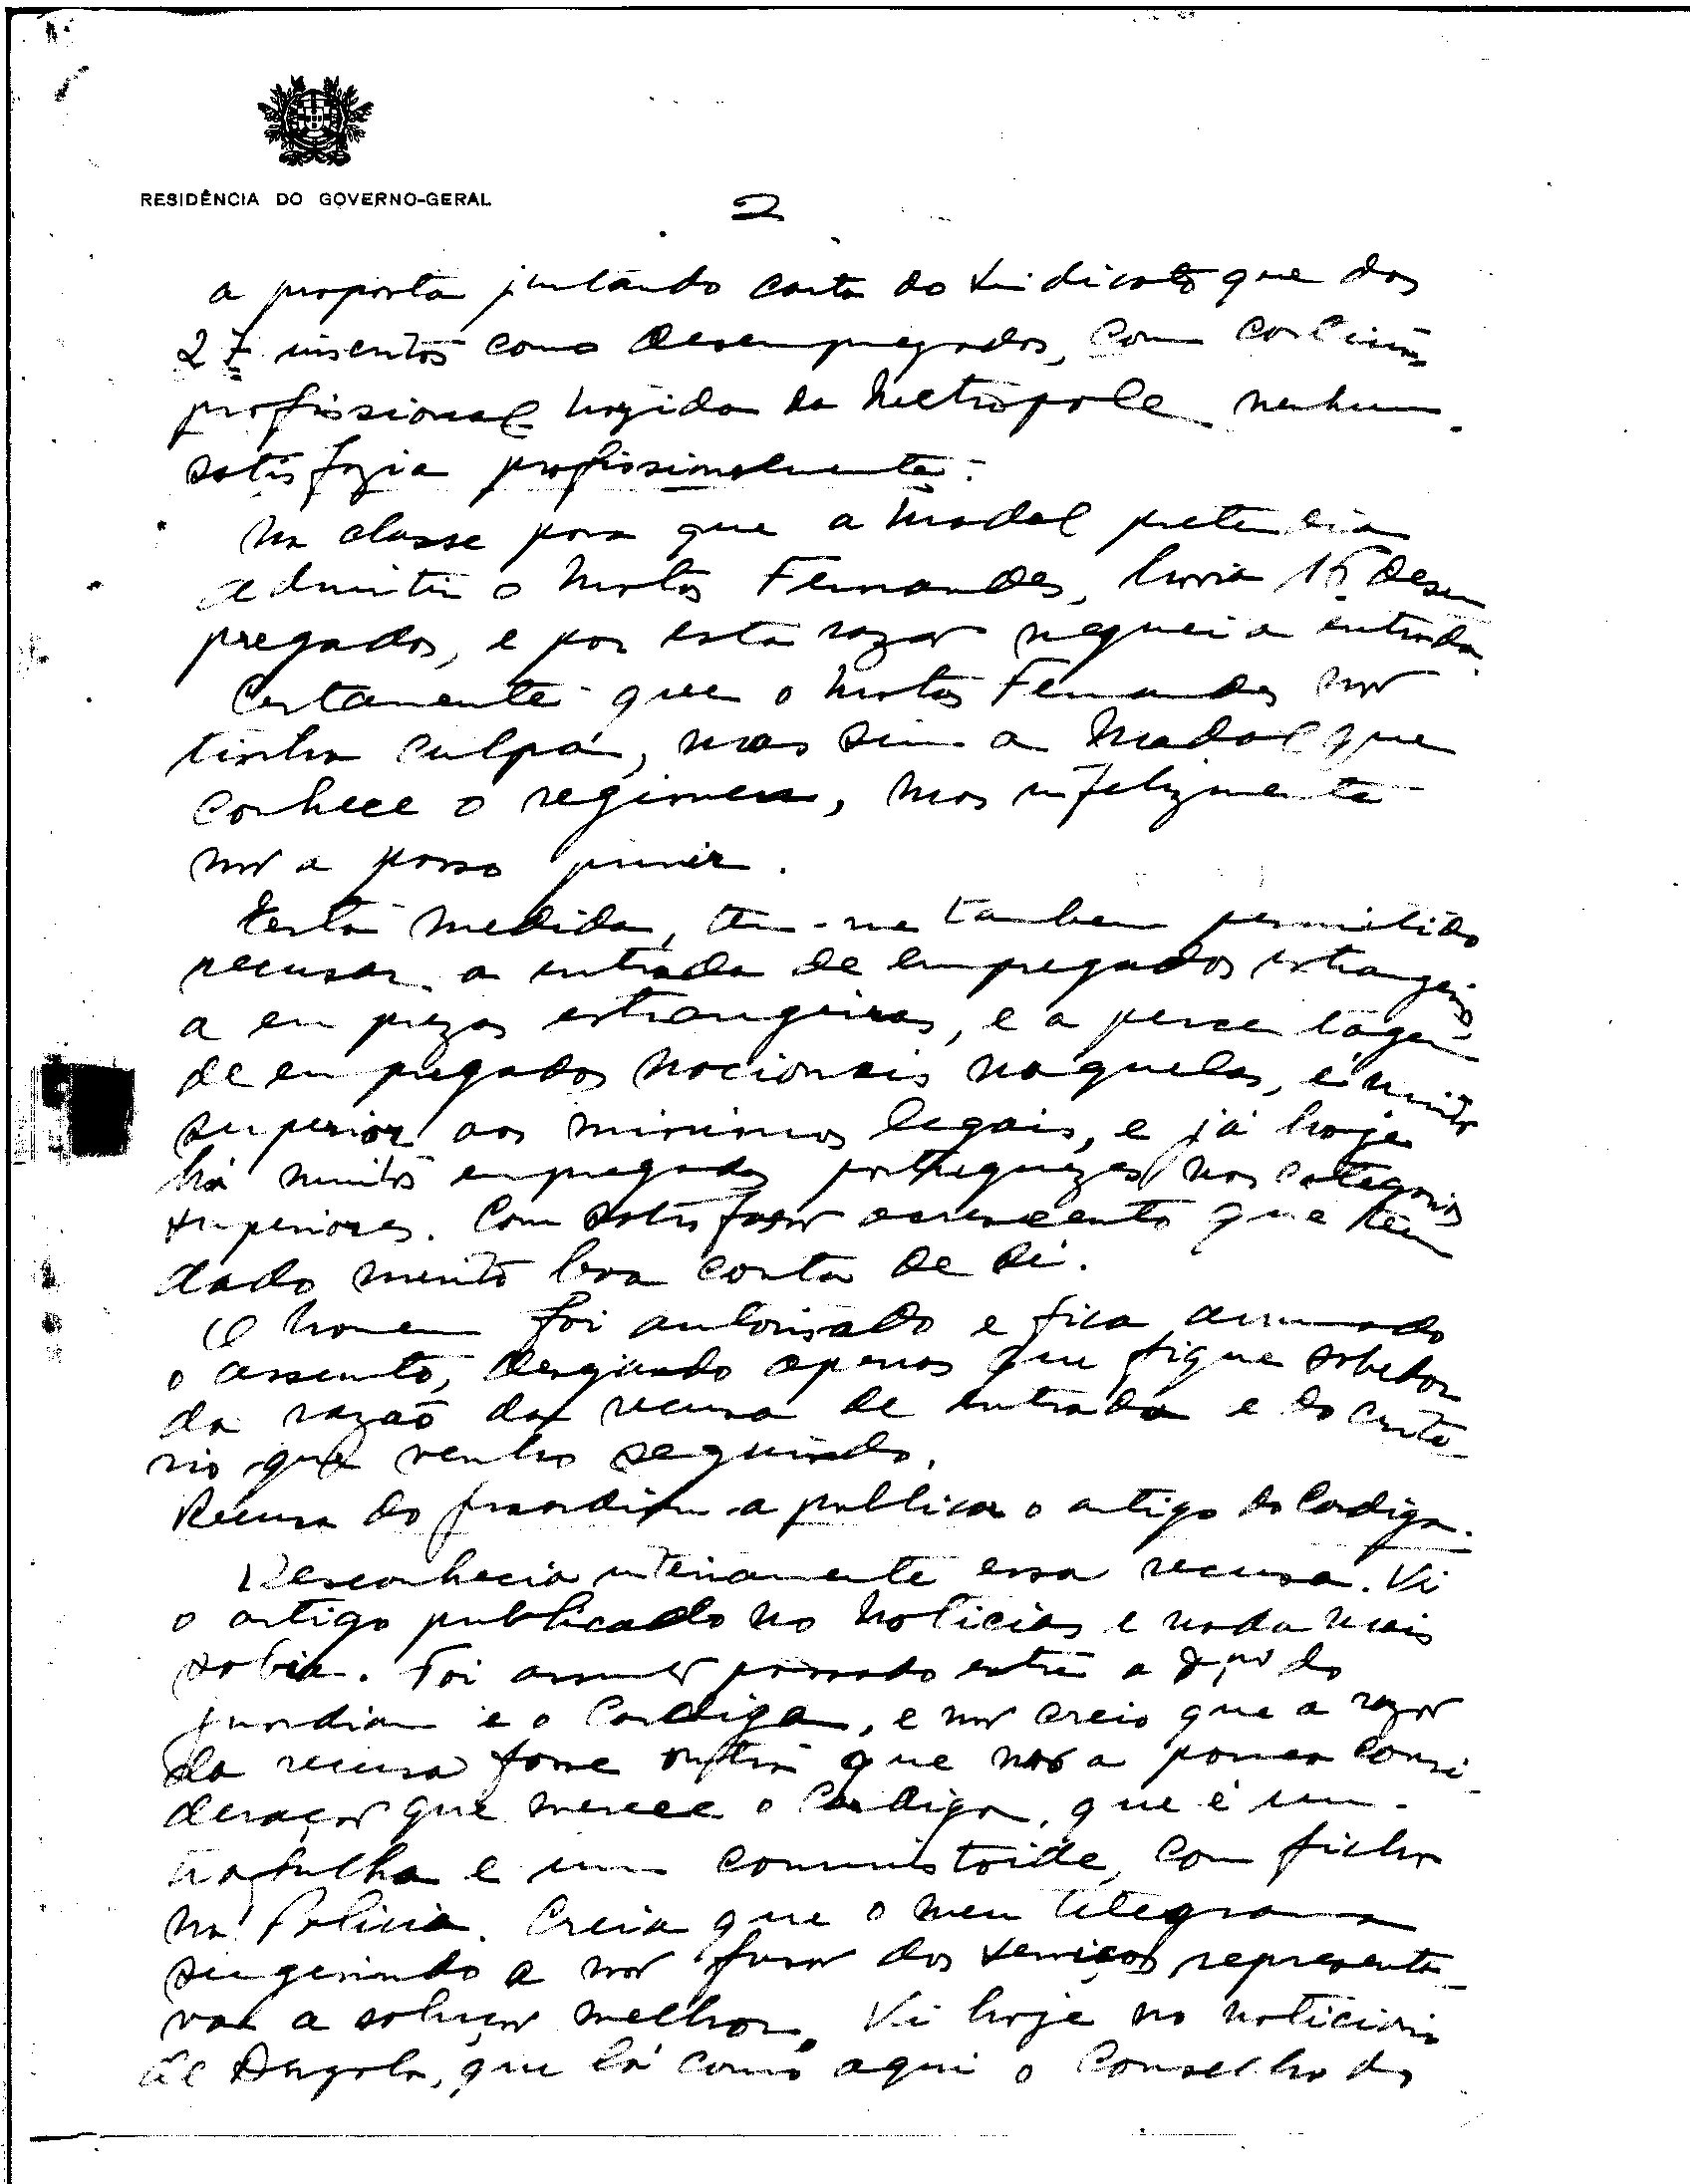 RESIDÊNCIA DO GOVERNO-GERAL
2
a proposta juntando carta do Sindicato que dos
27 inscritos como desempregados, com
profissional trazida da Metropole nenhum
satisfazia profissionalmente.
Na classe para que a Madal pretendia
admitir o Matos Fernandes, havia 15 desem
pregados, e por esta razão neguei a entrada.
Certamente que o Matos Fernandes não
tinha culpa, mas sim a Madal que
conhece o regimen, mas infelizmente
não a posso punir.
Esta medida, tem-me tambem permitido
recusar a entrada de empregados estrangeiros
a emprezas estrangeiras, e a percentagem
de empregados nacionais naquelas, é muito
superior aos minimos legais, e já hoje
há muitos empregados portuguezes nas categorias
superiores. Com satisfação acrescento que têm
dado muito boa conta de si.
O homem foi autorisado e fica arrumado
o assunto, desejando apenas que fique sabedor
da razão da recusa de entrada e do crite-
rio que venho seguindo.
Recusa do Guardian a publicar o artigo do Cardiga.
Desconhecia inteiramente essa recusa. Vi
o artigo publicado no Noticias e nada mais
sabia. Foi assunto passado entre a do
Guardian e o Cardiga, e não creio que a razão
da recusa fosse outra que não a pouca consi-
deração que merece o Cardiga, que é um
trafulha e um comunistoide, com ficha
na Policia. Creia que o meu telegrama
sugerindo a não dos serviços representa-
va a solução melhor. Vi hoje no noticiario
de Angola, que lá como aqui o Conselho do